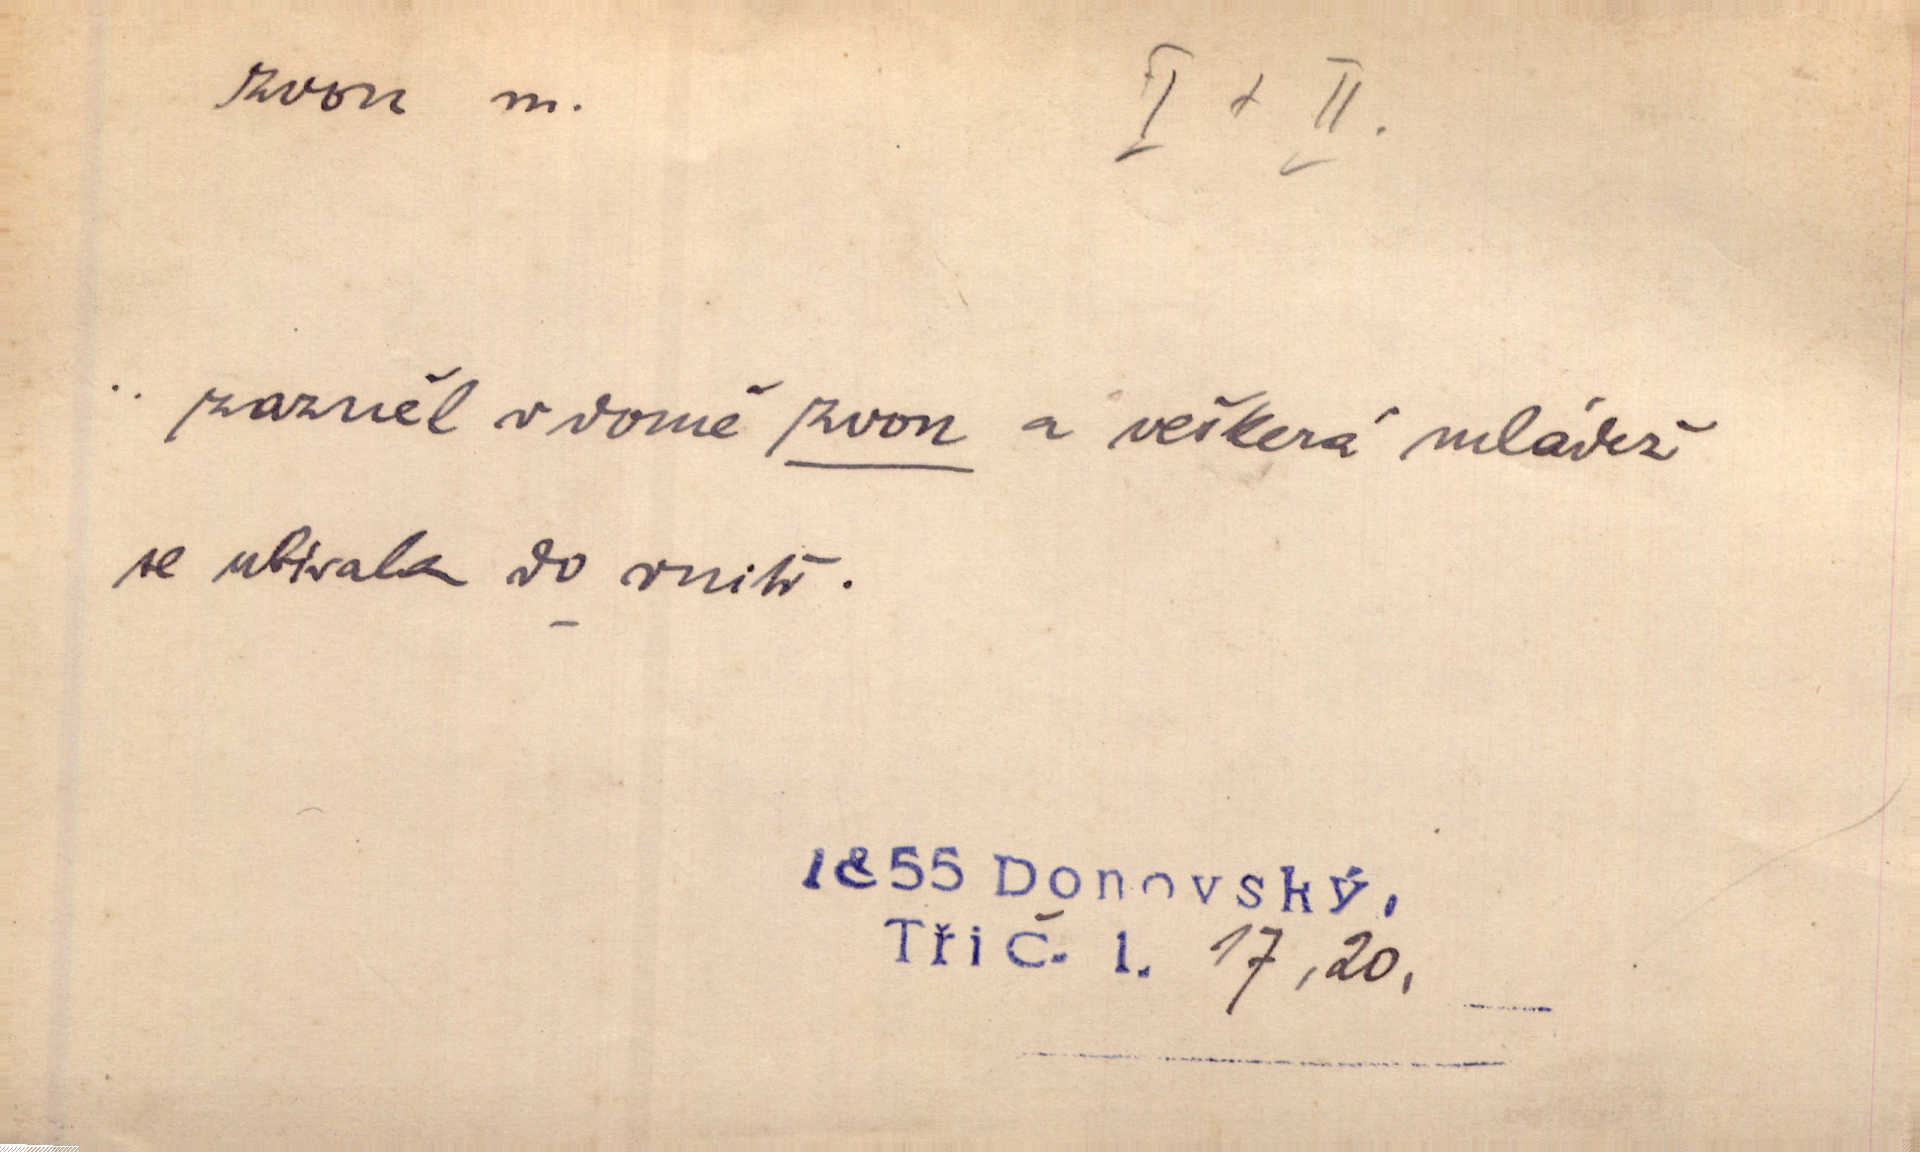 zvon m. I + II.
.. zazněl v domě zvon a veškerá mládež
se ubírala do vnitř.
1855 Donovský,
Tři č. 1. 17, 20.